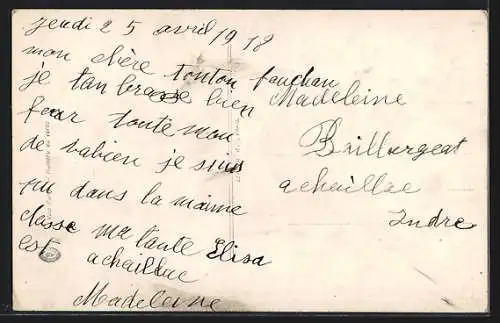 jeudi 25 avril 1918
mon chère tonton fanchan
je tan brasse bien
four toute mon
de va bien je suis
dans la maime
classe ma tante Elisa
est achaillac
Madeleine
Madeleine
Baillargeat
achaillac
Indre